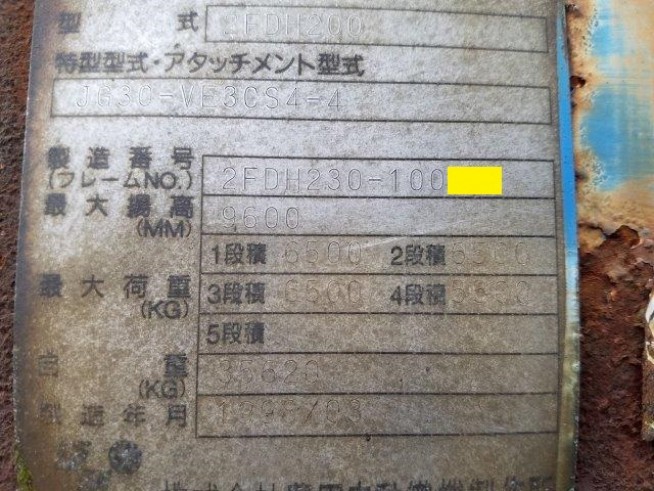 型式 2FDH260
特型型式・アタッチメント型式
JG30-VF3CS4-4
製造番号
(フレームNO.) 2FDH230-100
最大揚高
(MM) 9600
1段積 6500 2段積
最大荷重
(KG) 3段積 6500 4段積
5段積
自重
(KG) 35620
製造年月
株式会社豊田自動織機製作所